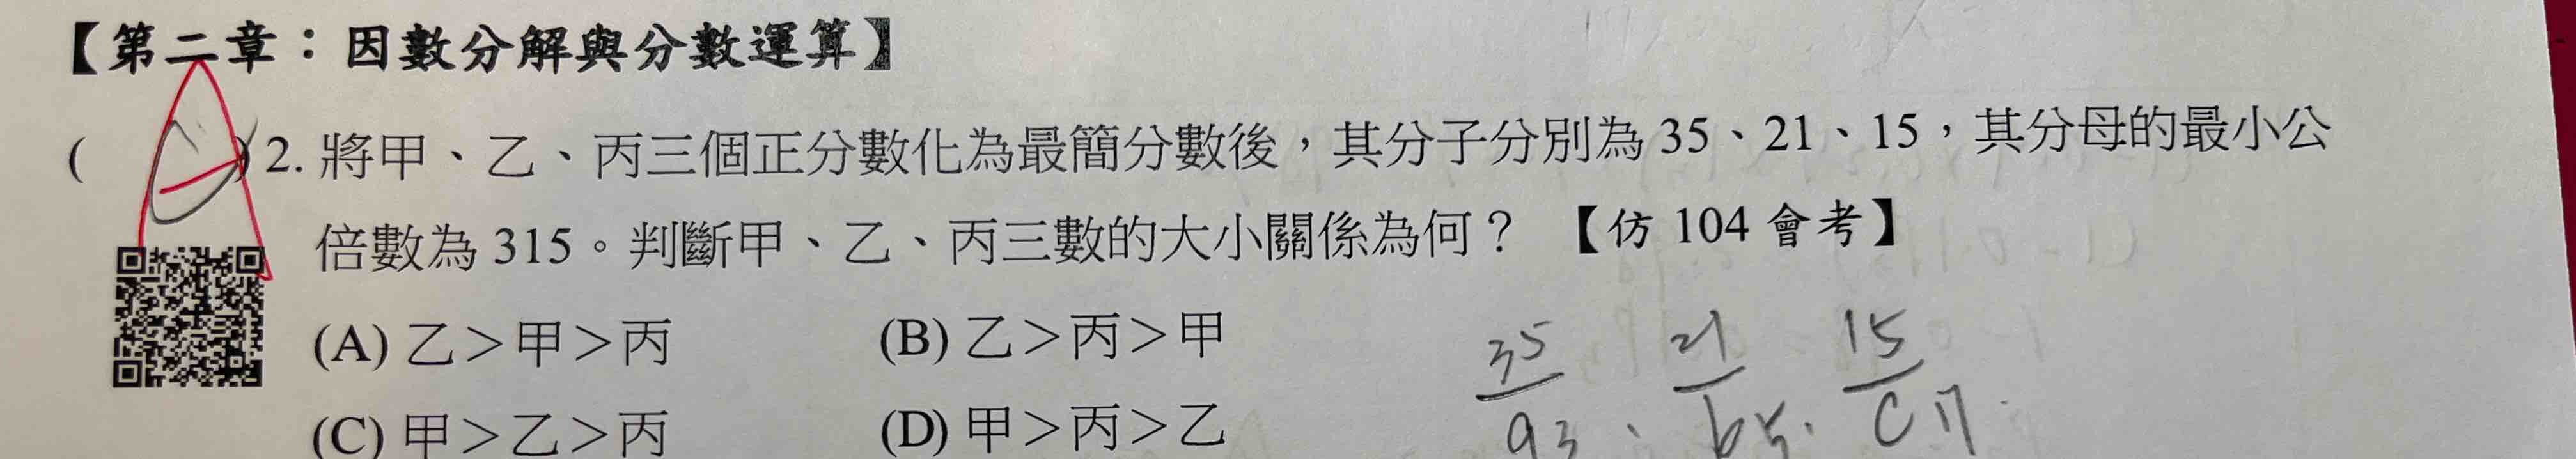 【第二章：因數分解與分數運算】
( ) 2. 將甲、乙、丙三個正分數化為最簡分數後，其分子分別為 35、21、15，其分母的最小公
倍數為 315。判斷甲、乙、丙三數的大小關係為何？ 【仿 104 會考】
(A) 乙＞甲＞丙 (B) 乙＞丙＞甲
(C) 甲＞乙＞丙 (D) 甲＞丙＞乙
35 21 15